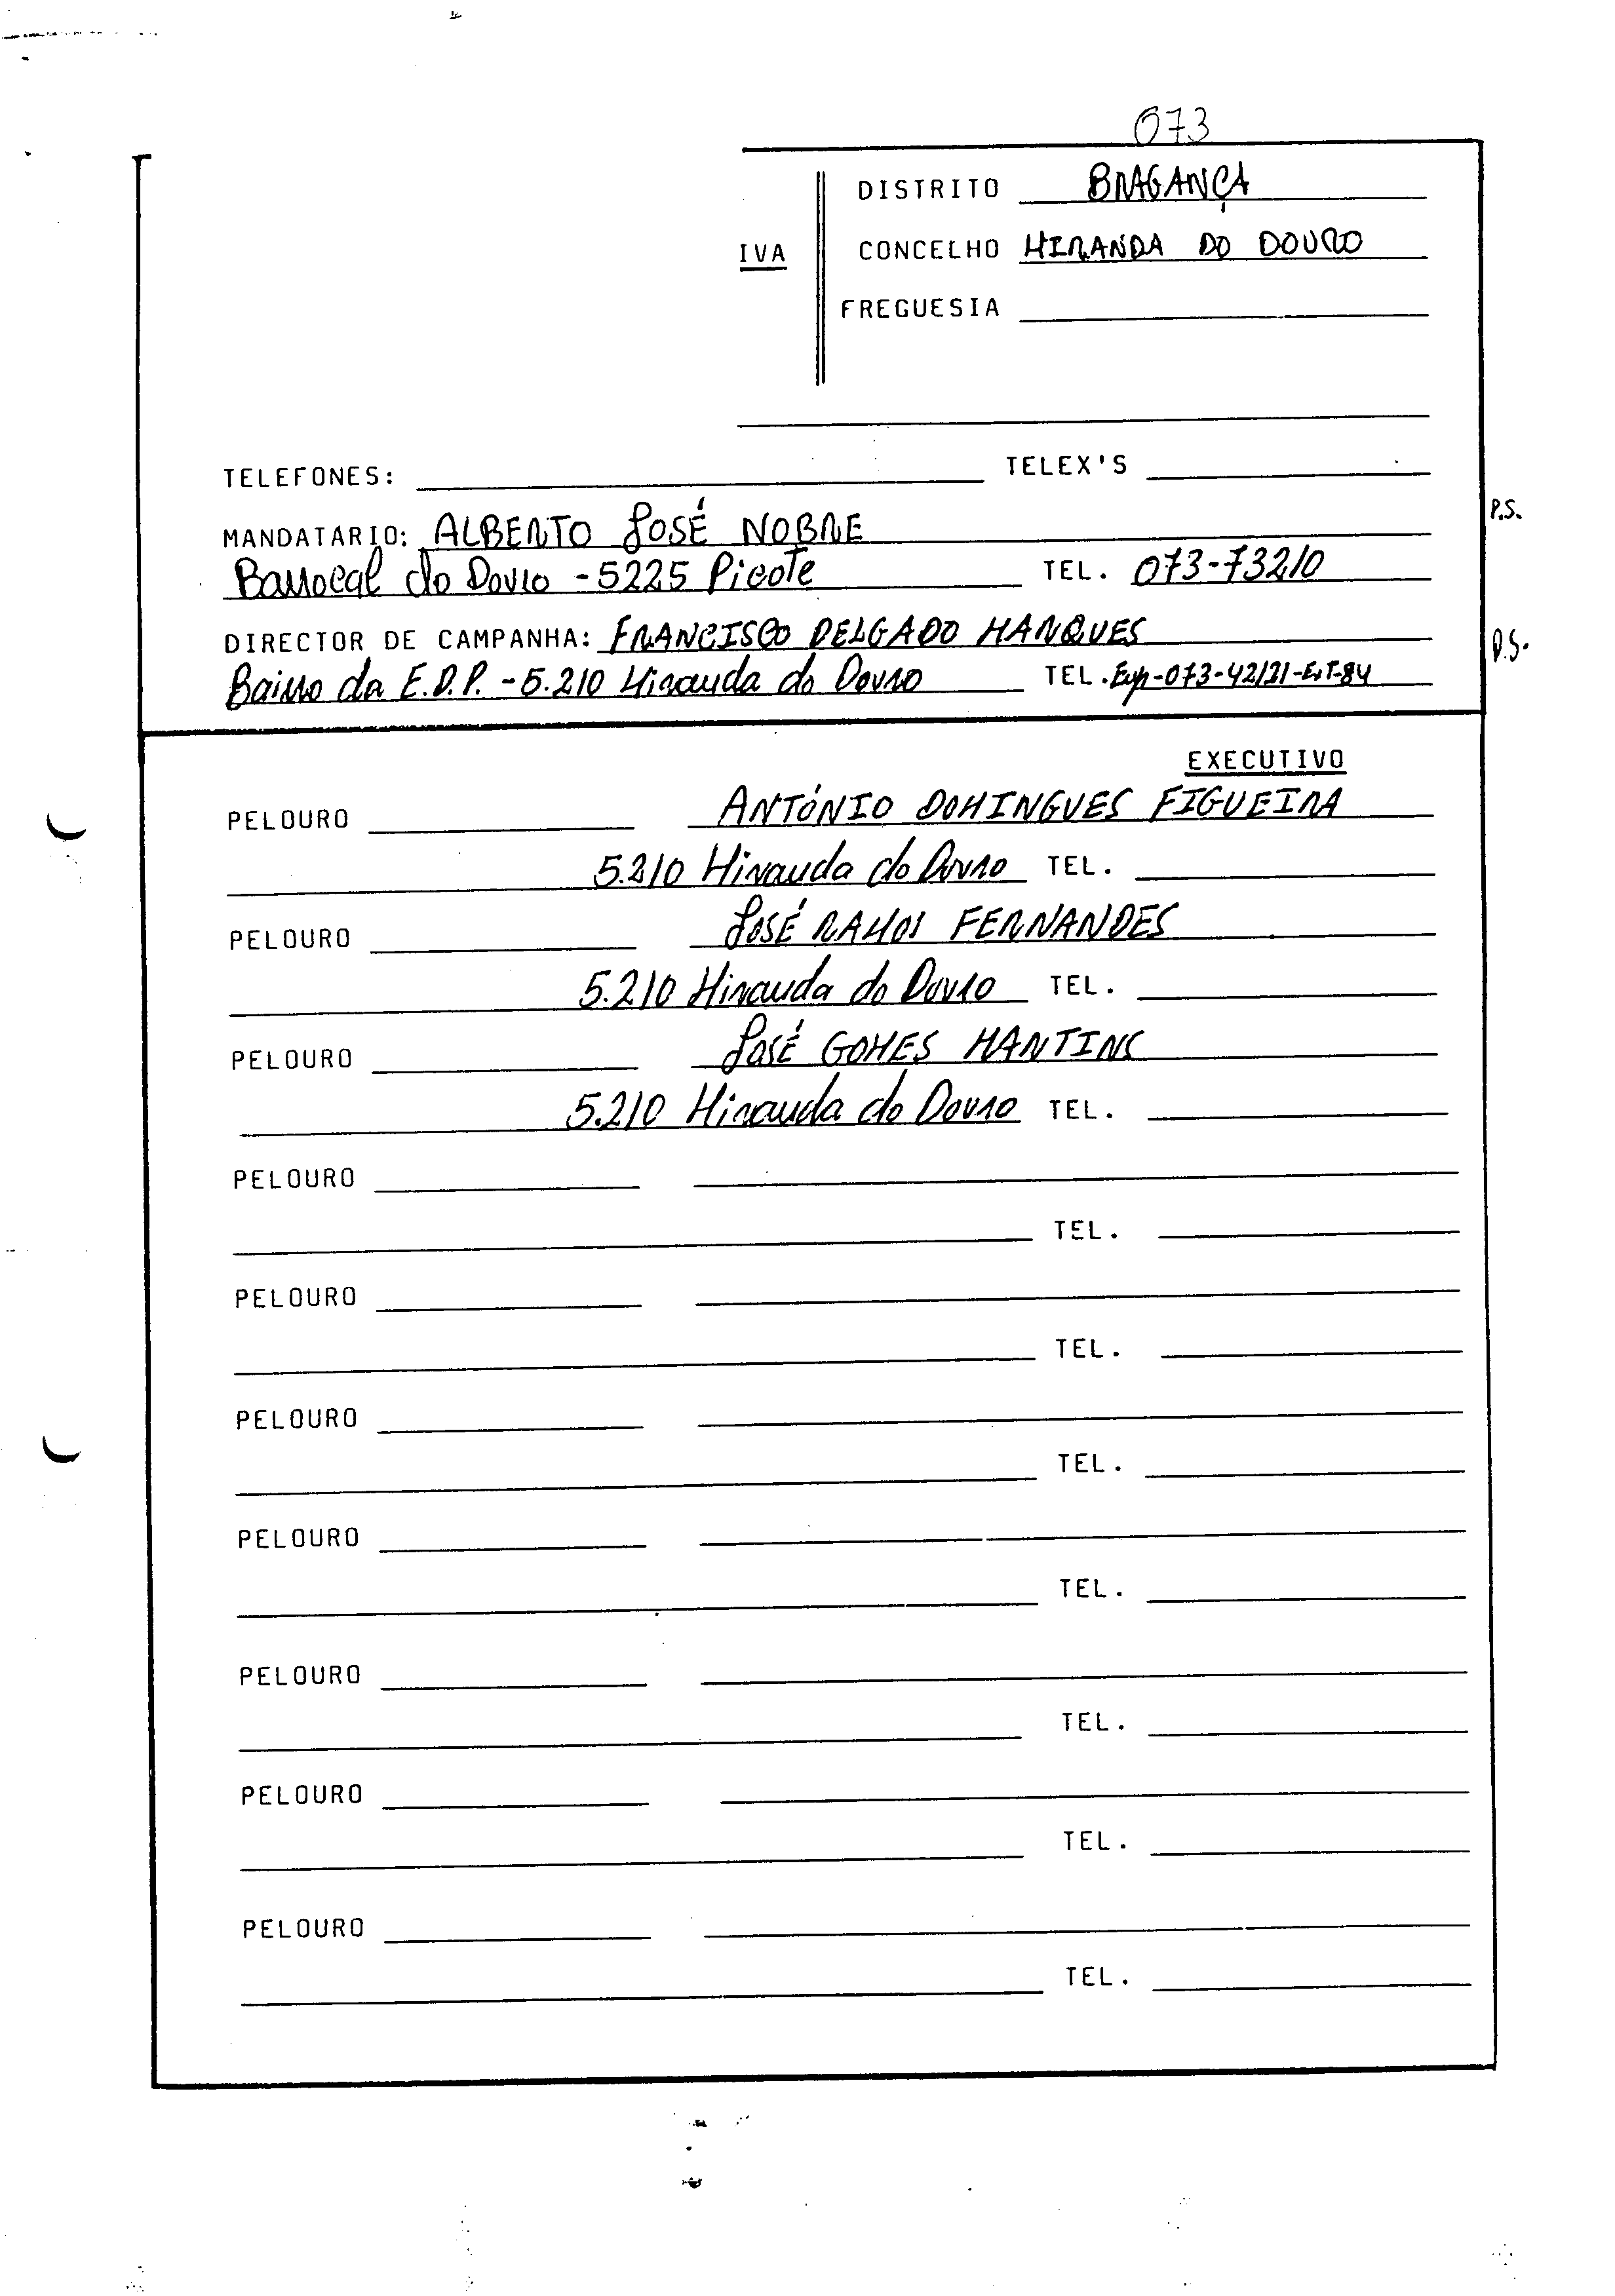 073
DISTRITO BRAGANÇA
IVA
CONCELHO MIRANDA DO DOURO
FREGUESIA
TELEFONES: TELEX'S
MANDATARIO: ALBERTO JOSÉ NOBRE P.S.
Barrocal do Douro - 5225 Picote TEL. 073-73210
DIRECTOR DE CAMPANHA: FRANCISCO DELGADO MARQUES P.S.
Bairro da E.D.P. - 5.210 Miranda do Douro TEL. 073-42121-Ext-84
EXECUTIVO
PELOURO ANTÓNIO DOMINGUES FIGUEIRA
5.210 Miranda do Douro TEL.
PELOURO JOSÉ RAMOS FERNANDES
5.210 Miranda do Douro TEL.
PELOURO JOSÉ GOMES MARTINS
5.210 Miranda do Douro TEL.
PELOURO
TEL.
PELOURO
TEL.
PELOURO
TEL.
PELOURO
TEL.
PELOURO
TEL.
PELOURO
TEL.
PELOURO
TEL.